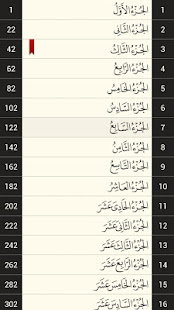 1 الجُزْءُ الأَوَّلُ 1
2 الجُزْءُ الثَّانِي 22
3 الجُزْءُ الثَّالِثُ 42
4 الجُزْءُ الرَّابِعُ 62
5 الجُزْءُ الخَامِسُ 82
6 الجُزْءُ السَّادِسُ 102
7 الجُزْءُ السَّابِعُ 122
8 الجُزْءُ الثَّامِنُ 142
9 الجُزْءُ التَّاسِعُ 162
10 الجُزْءُ العَاشِرُ 182
11 الجُزْءُ الحَادِي عَشَرَ 202
12 الجُزْءُ الثَّانِي عَشَرَ 222
13 الجُزْءُ الثَّالِثَ عَشَرَ 242
14 الجُزْءُ الرَّابِعَ عَشَرَ 262
15 الجُزْءُ الخَامِسَ عَشَرَ 282
16 الجُزْءُ السَّادِسَ عَشَرَ 302